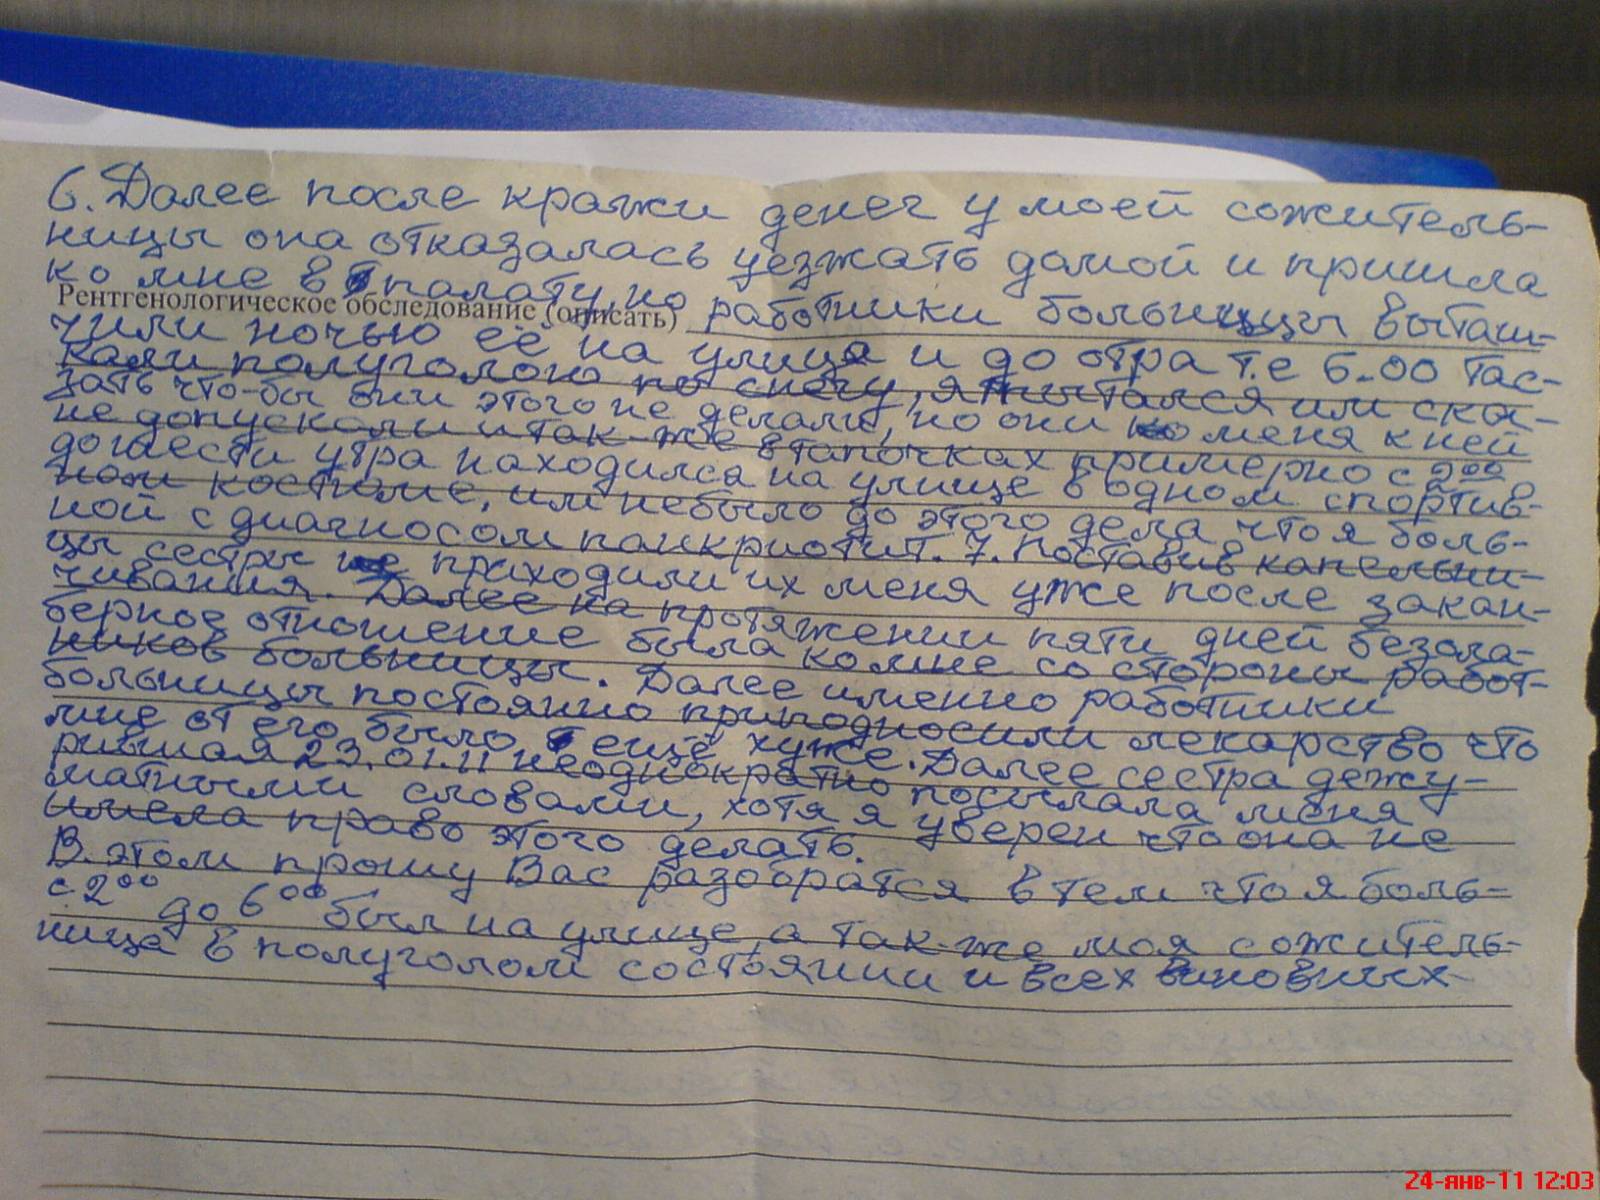 6. Далее после кражи денег у моей сожитель-
ницы она отказалась уезжать домой и пришла
ко мне в палату, но работники больницы выташ-
Рентгенологическое обследование (описать)
чили ночью её на улица и до отра т.е 6.00 тас-
кали полуголою по снегу, я пытался им ска-
зать что-бы они этого не делали, но они меня к ней
не допускали и так-же в тапочках примерно с 2 00
до шести утра находился на улище в одном спортив-
ном костюме, им небыло до этого дела что я боль-
ной с диагносом панкриотит. 7. Поставив капельни-
цы сестры приходили их меня уже после закан-
чивания. Далее на протяжении пяти дней безола-
берное отношение была ко мне со стороны работ-
ников больницы. Далее именно работники
больницы постоянно приподносили лекарство что
мне от его было ещё хуже. Далее сестра дежу-
рившая 23.01.11 неоднократно посылала меня
матными словами, хотя я уверен что она не
имела право этого делать.
В этом прошу Вас разобратся в тем что я боль-
с 2 00 до 6 00 был на улице, а так-же моя сожитель-
ница в полуголом состоянии и всех виновных
24-янв-11 12:03